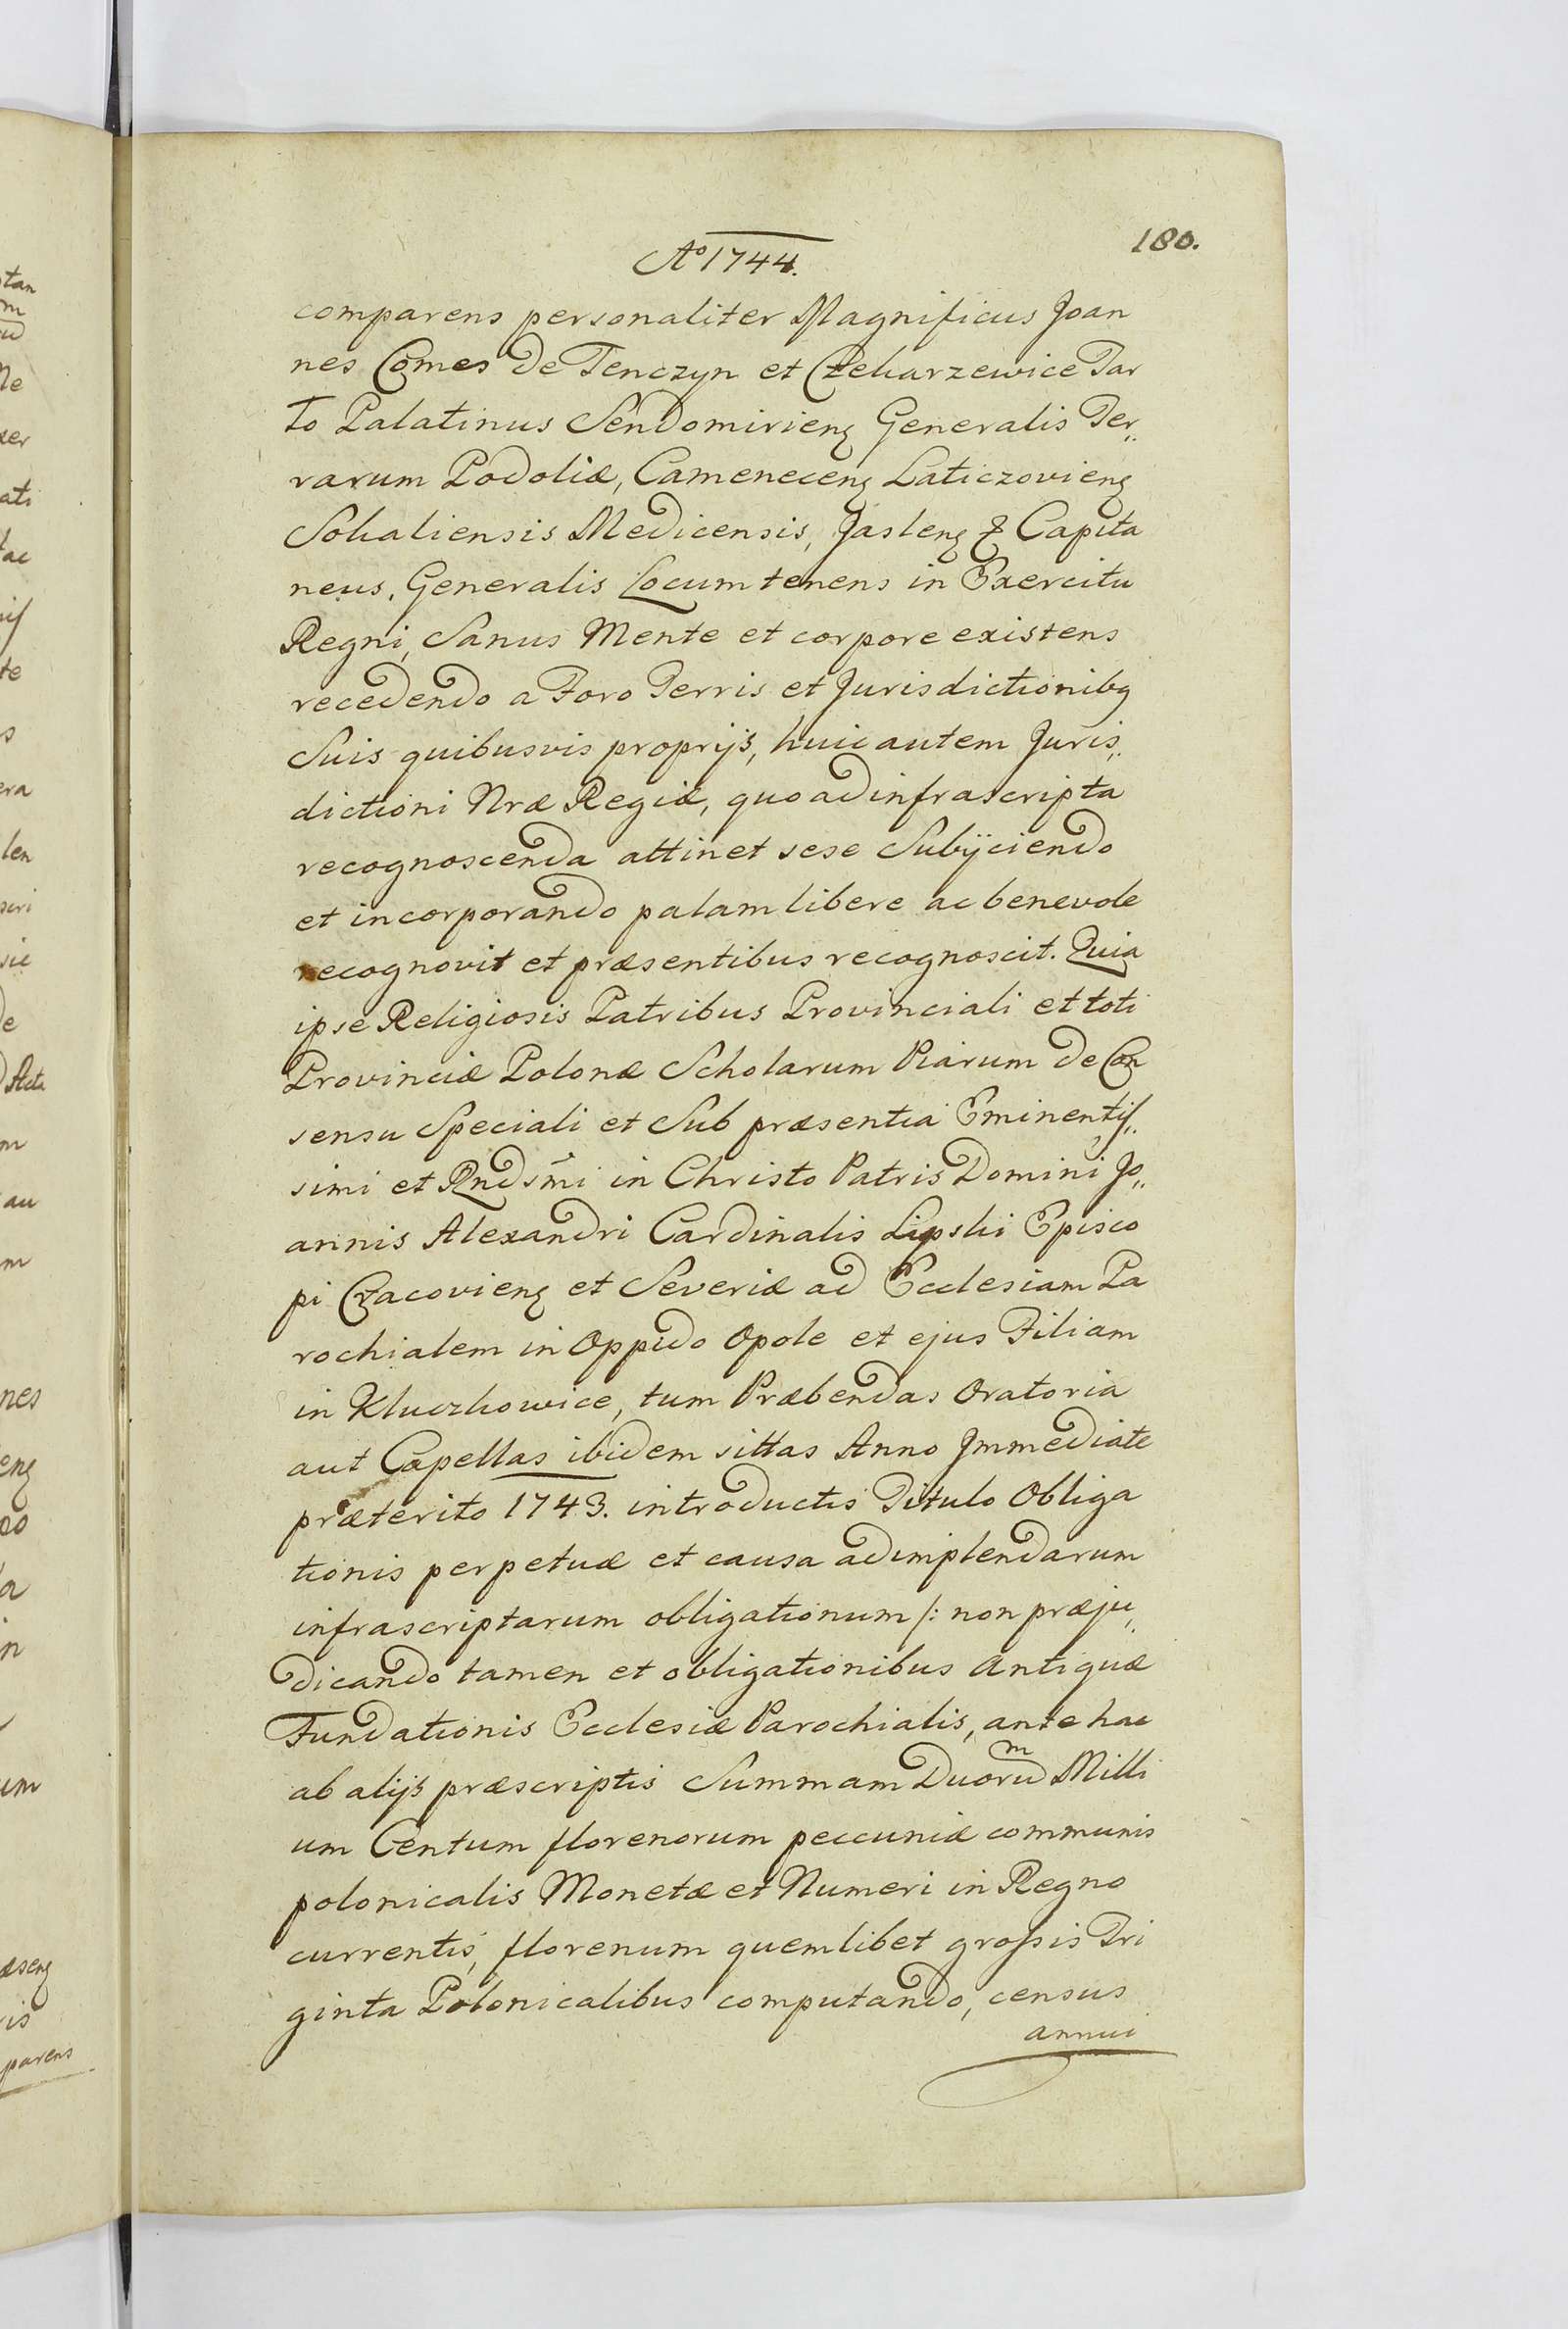 180.
Aº 1744.
comparens personaliter Magnificus Joan
nes Comes de Tenczyn et Czekarzewice Tar
to Palatinus Sendomirienꝫ Generalis Ter„
rarum Podoliæ, Camenecenꝫ Laticzovienꝫ
Sokaliensis Medicensis, Jaslenꝫ & Capita
neus, Generalis Locumtenens in Exercitu
Regni, Sanus Mente et corpore existens
recedendo a Foro Terris et Jurisdictionibꝫ
Suis quibusvis proprijs, huic autem Juris„
dictioni Nræ Regiæ, quoad infrascripta
recognoscenda attinet sese Subijciendo
et incorporando palam libere ac benevole
recognovit et præsentibus recognoscit. Quia
ipse Religiosis Patribus Provinciali et toti
Provinciæ Polonæ Scholarum Piarum de Con
sensu Speciali et Sub præsentia Eminentis„
simi et Rndsmi in Christo Patris Domini Jo„
annis Alexandri Cardinalis Lipski Episco
pi Cracovienꝫ et Severiæ ad Ecclesiam Pa
rochialem in Oppido Opole et ejus Filiam
in Kluczkowice, tum Præbendas Oratoria
aut Capellas ibidem sittas Anno Jmmediate
præterito 1743. introductis Titulo Obliga
tionis perpetuæ et causa adimplendarum
infrascriptarum obligationum /: non præju„
dicando tamen et obligationibus Antiquæ
Fundationis Ecclesiæ Parochialis, ante hac
ab alijs præscriptis Summam Duorum Milli
um Centum florenorum peccuniæ communis
polonicalis Monetæ et Numeri in Regno
currentis, florenum quemlibet grossis Tri
ginta Polonicalibus computando, census
annui